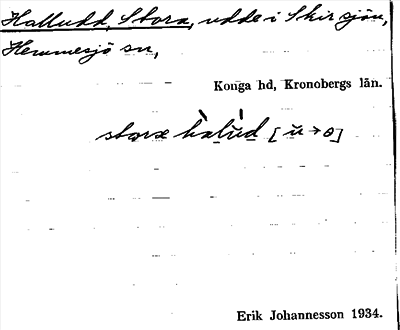 Halludd, Stora, udde i Skirsjön,
Hemmesjö sn,
Konga hd, Kronobergs län.
storæ hàlúd [ŭ→o]
Erik Johannesson 1934.